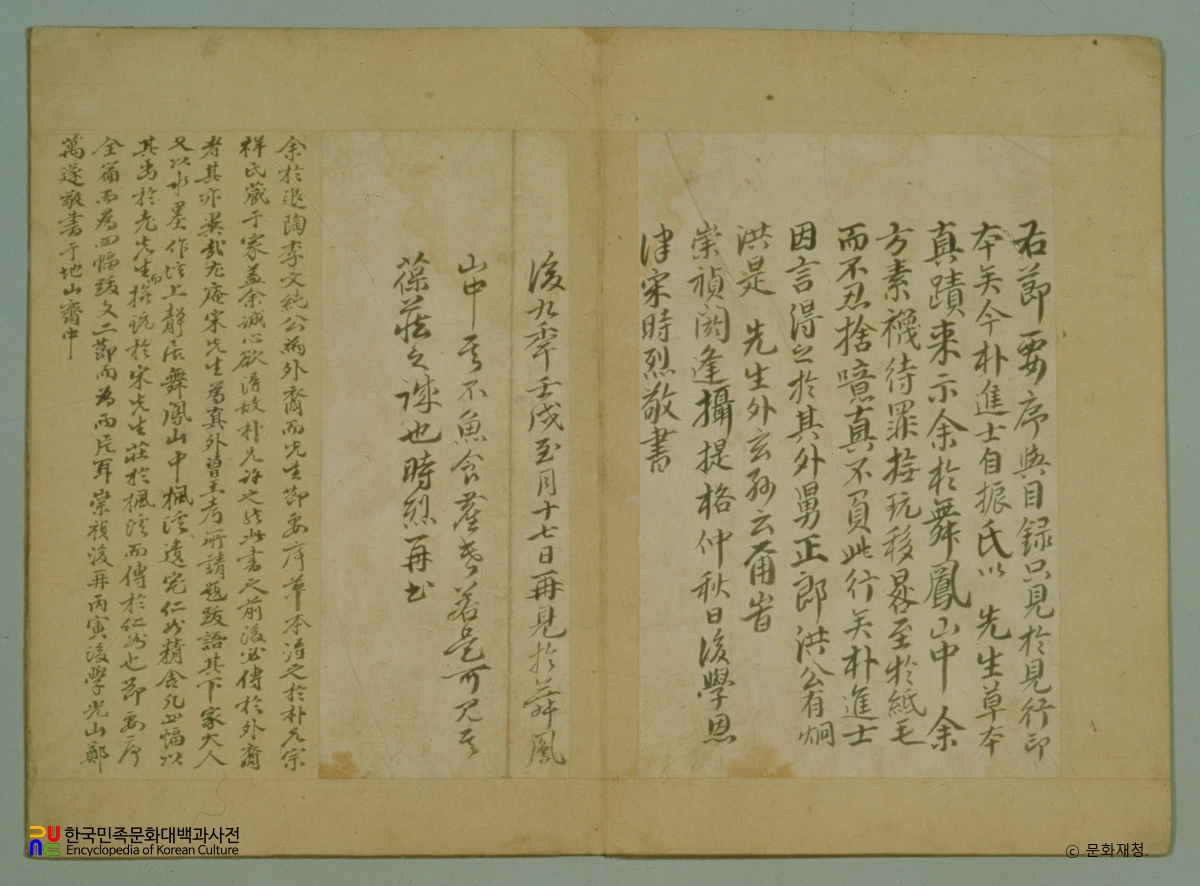 右節要序與目錄只見於見行印
本矣今朴進士自振氏以 先生草本
真蹟來示余於舞鳳山中 余
方素襪待罪捨玩移晷至於紙毛
而不忍捨噫真不負此行矣朴進士
因言得之於其外舅正郎洪公有炯
洪是 先生外玄孫云甫崇
崇禎閼逢攝提格仲秋日後學恩
津宋時烈敬書
後九年壬戌至月十七日再見於舞鳳
山中 其不魚食 若是可見其
葆藏之誠也時烈再書
余於退陶李文純公為外裔而先生節要序草本得之於朴兄宗
祥氏藏于家蓋余誠心欲得故朴兄許之於此書之前後必傳於外裔
者其亦異哉尤庵宋先生為真外曾王考所請題跋語其下家大人
又以水墨作溪上靜居舞鳳山中楓溪遺宅仁谷精舍凡四幅以
其出於老先生而 玩於宋先生莊於楓溪而傳於仁谷也節要序
全篇而為四幅跋文二節而為兩片耳崇禎後再丙寅後學光山鄭
萬遂敬書于地山齋中
한국민족문화대백과사전
Encyclopedia of Korean Culture
ⓒ 문화재청.